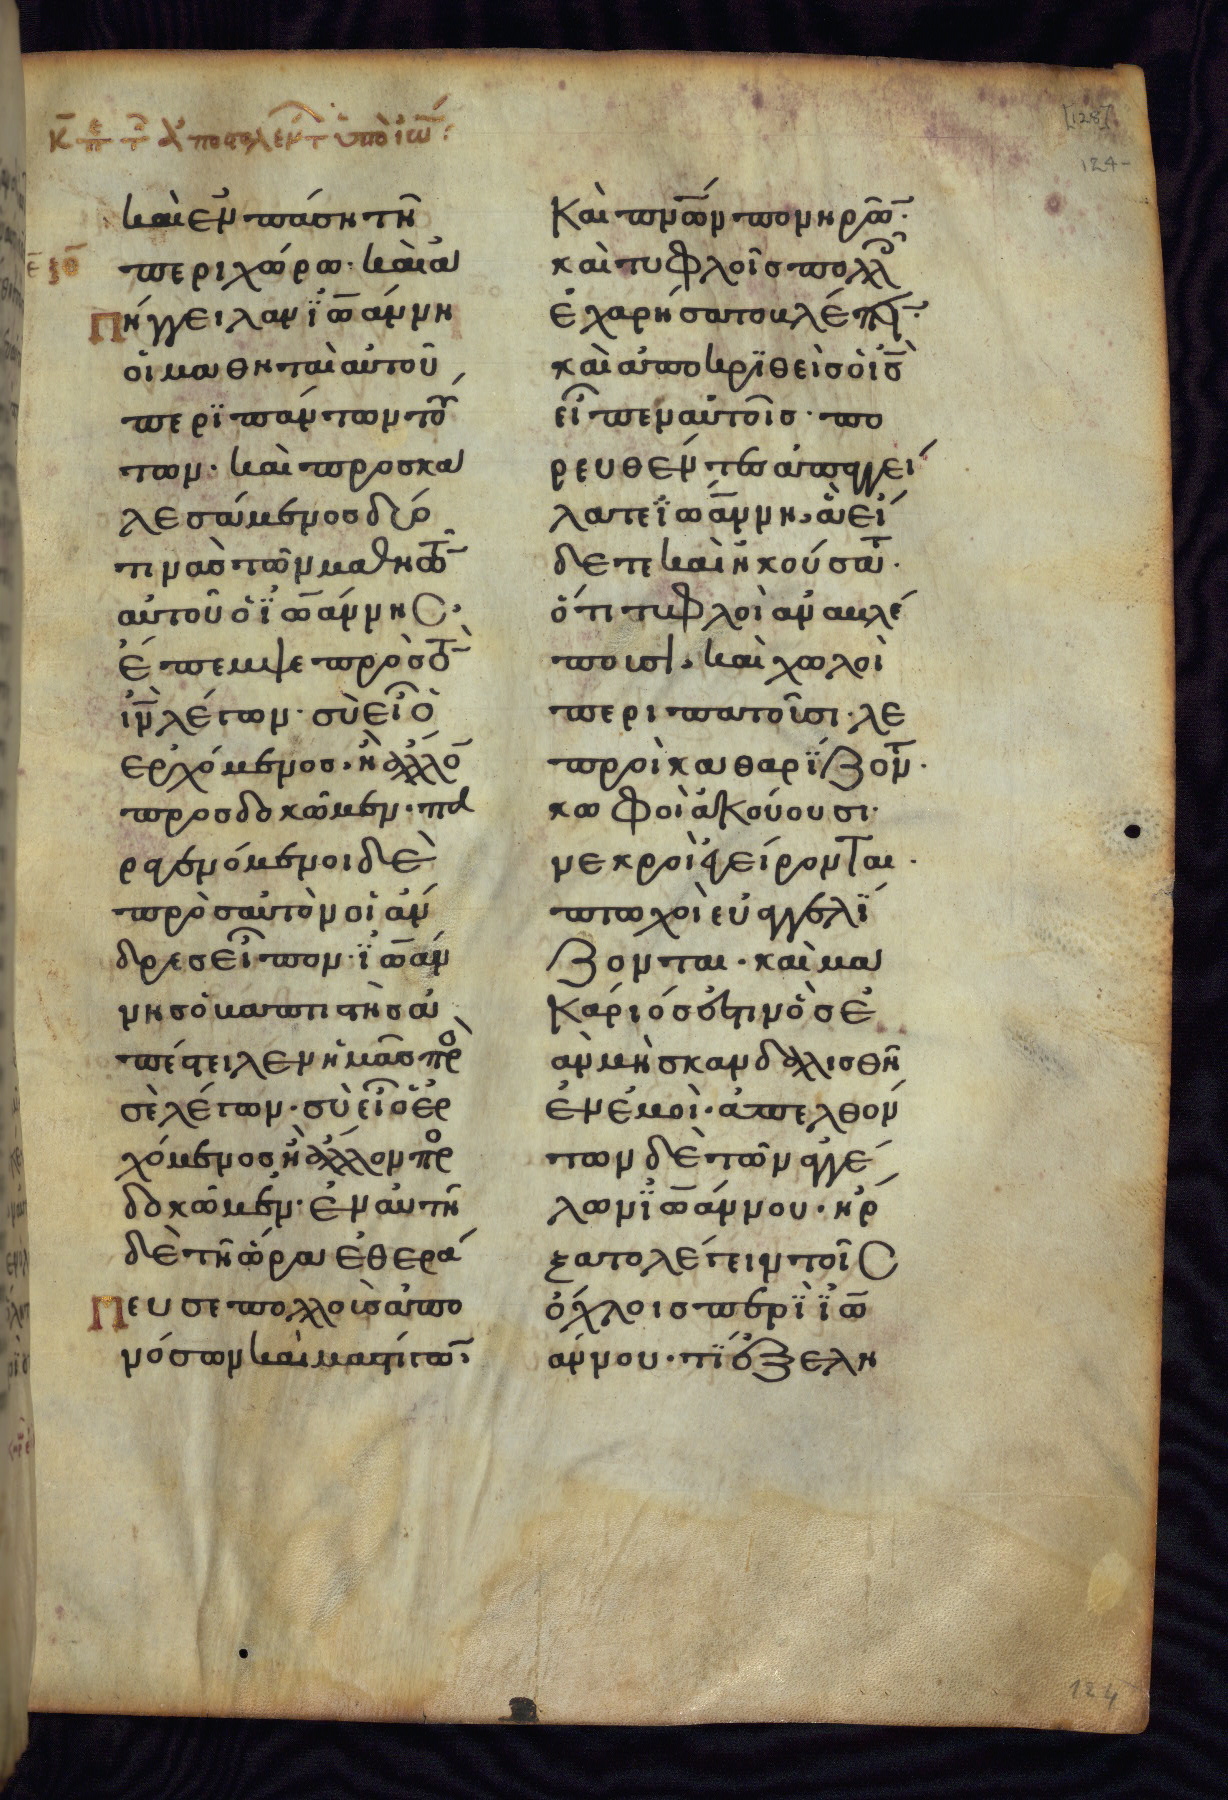 [128]
124
καὶ ἐν πάσῃ τῇ
περιχώρω· καὶ ἀ
πήγγειλαν ϊω̅άννη
οἱ μαθηταὶ αὐτοῦ
περὶ πάντων τού
των· καὶ προσκα
λεσάμενος δύο
τινὰς τῶν μαθητῶ̅
αὐτοῦ ὁ ϊω̅άννης,
ἔπεμψε πρὸς τὸ̅
ι̅ν̅ λέγων· σὺ εἶ ὁ
ἐρχόμενος· ἢ ἄλλο̅
προσδοκῶμεν· πα
ραγενόμενοι δὲ
πρὸς αὐτὸν οἱ ἄν
δρες εἶπον· ϊω̅άν
νης ὁ βαπτιστὴς ἀ
πέστειλεν ἡμᾶς πρὸ
σὲ λέγων· σὺ εἶ ὁ ἐρ
χόμενος ἢ ἄλλον προσ
δοκῶμεν· ἐν αὐτῇ
δὲ τῇ ὥρα ἐθερά
πευσε πολλοὺς ἀπὸ
νόσων καὶ μαστίγω̅·
Καὶ πν̅ω̅ν πονηρῶ̅·
καὶ τυφλοῖς πολλοῖ
ἐχαρήσατο βλέπειν·
καὶ ἀποκριθεὶς ὁ ι̅ς̅
εἶπεν αὐτοῖς· πο
ρευθέντες ἀπαγγεί
λατε ϊω̅άννη, ἃ εἴ
δετε καὶ ἠκούσατ·
ὅτι τυφλοὶ ἀναβλέ
πουσι, καὶ χωλοὶ
περιπατοῦσι· λε
προὶ καθαρίζοντ·
κωφοὶ ἀκούουσι·
νεκροὶ ἐγείρονται·
πτωχοὶ εὐαγγελί
ζονται· καὶ μα
κάριός ἐστιν ὃς ἐ
ὰν μὴ σκανδαλισθῇ
ἐν ἐμοί· ἀπελθόν
των δὲ τῶν ἀγγέ
λων ϊω̅άννου· ἤρ
ξατο λέγειν τοῖς
ὄχλοις περὶ ϊω̅
άννου· τί ἐξελη
124